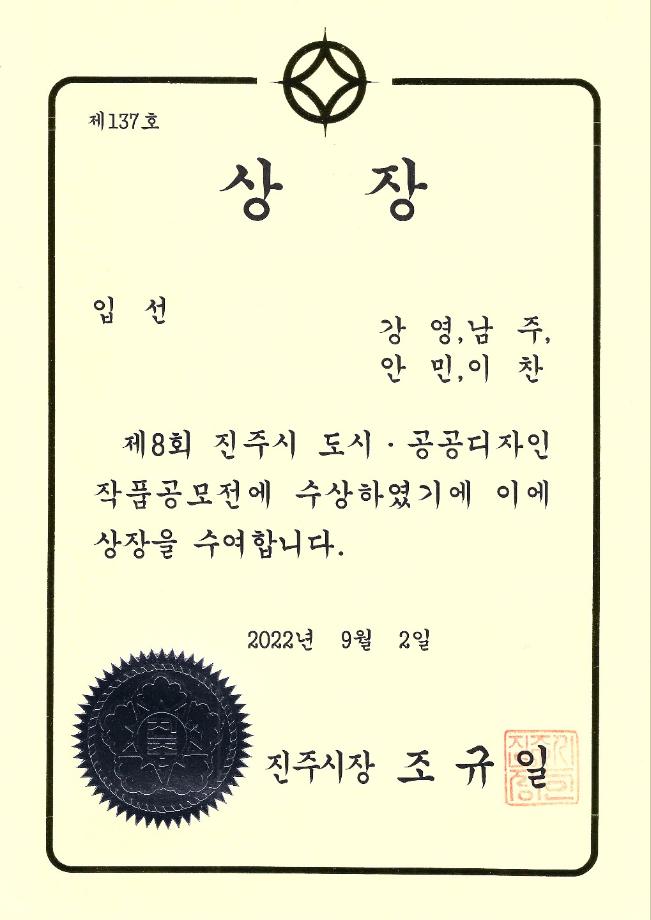 제137호
상 장
입 선
강 영,남 주,
안 민,이 찬
제8회 진주시 도시·공공디자인
작품공모전에 수상하였기에 이에
상장을 수여합니다.
2022년 9월 2일
진주시장 조 규 일